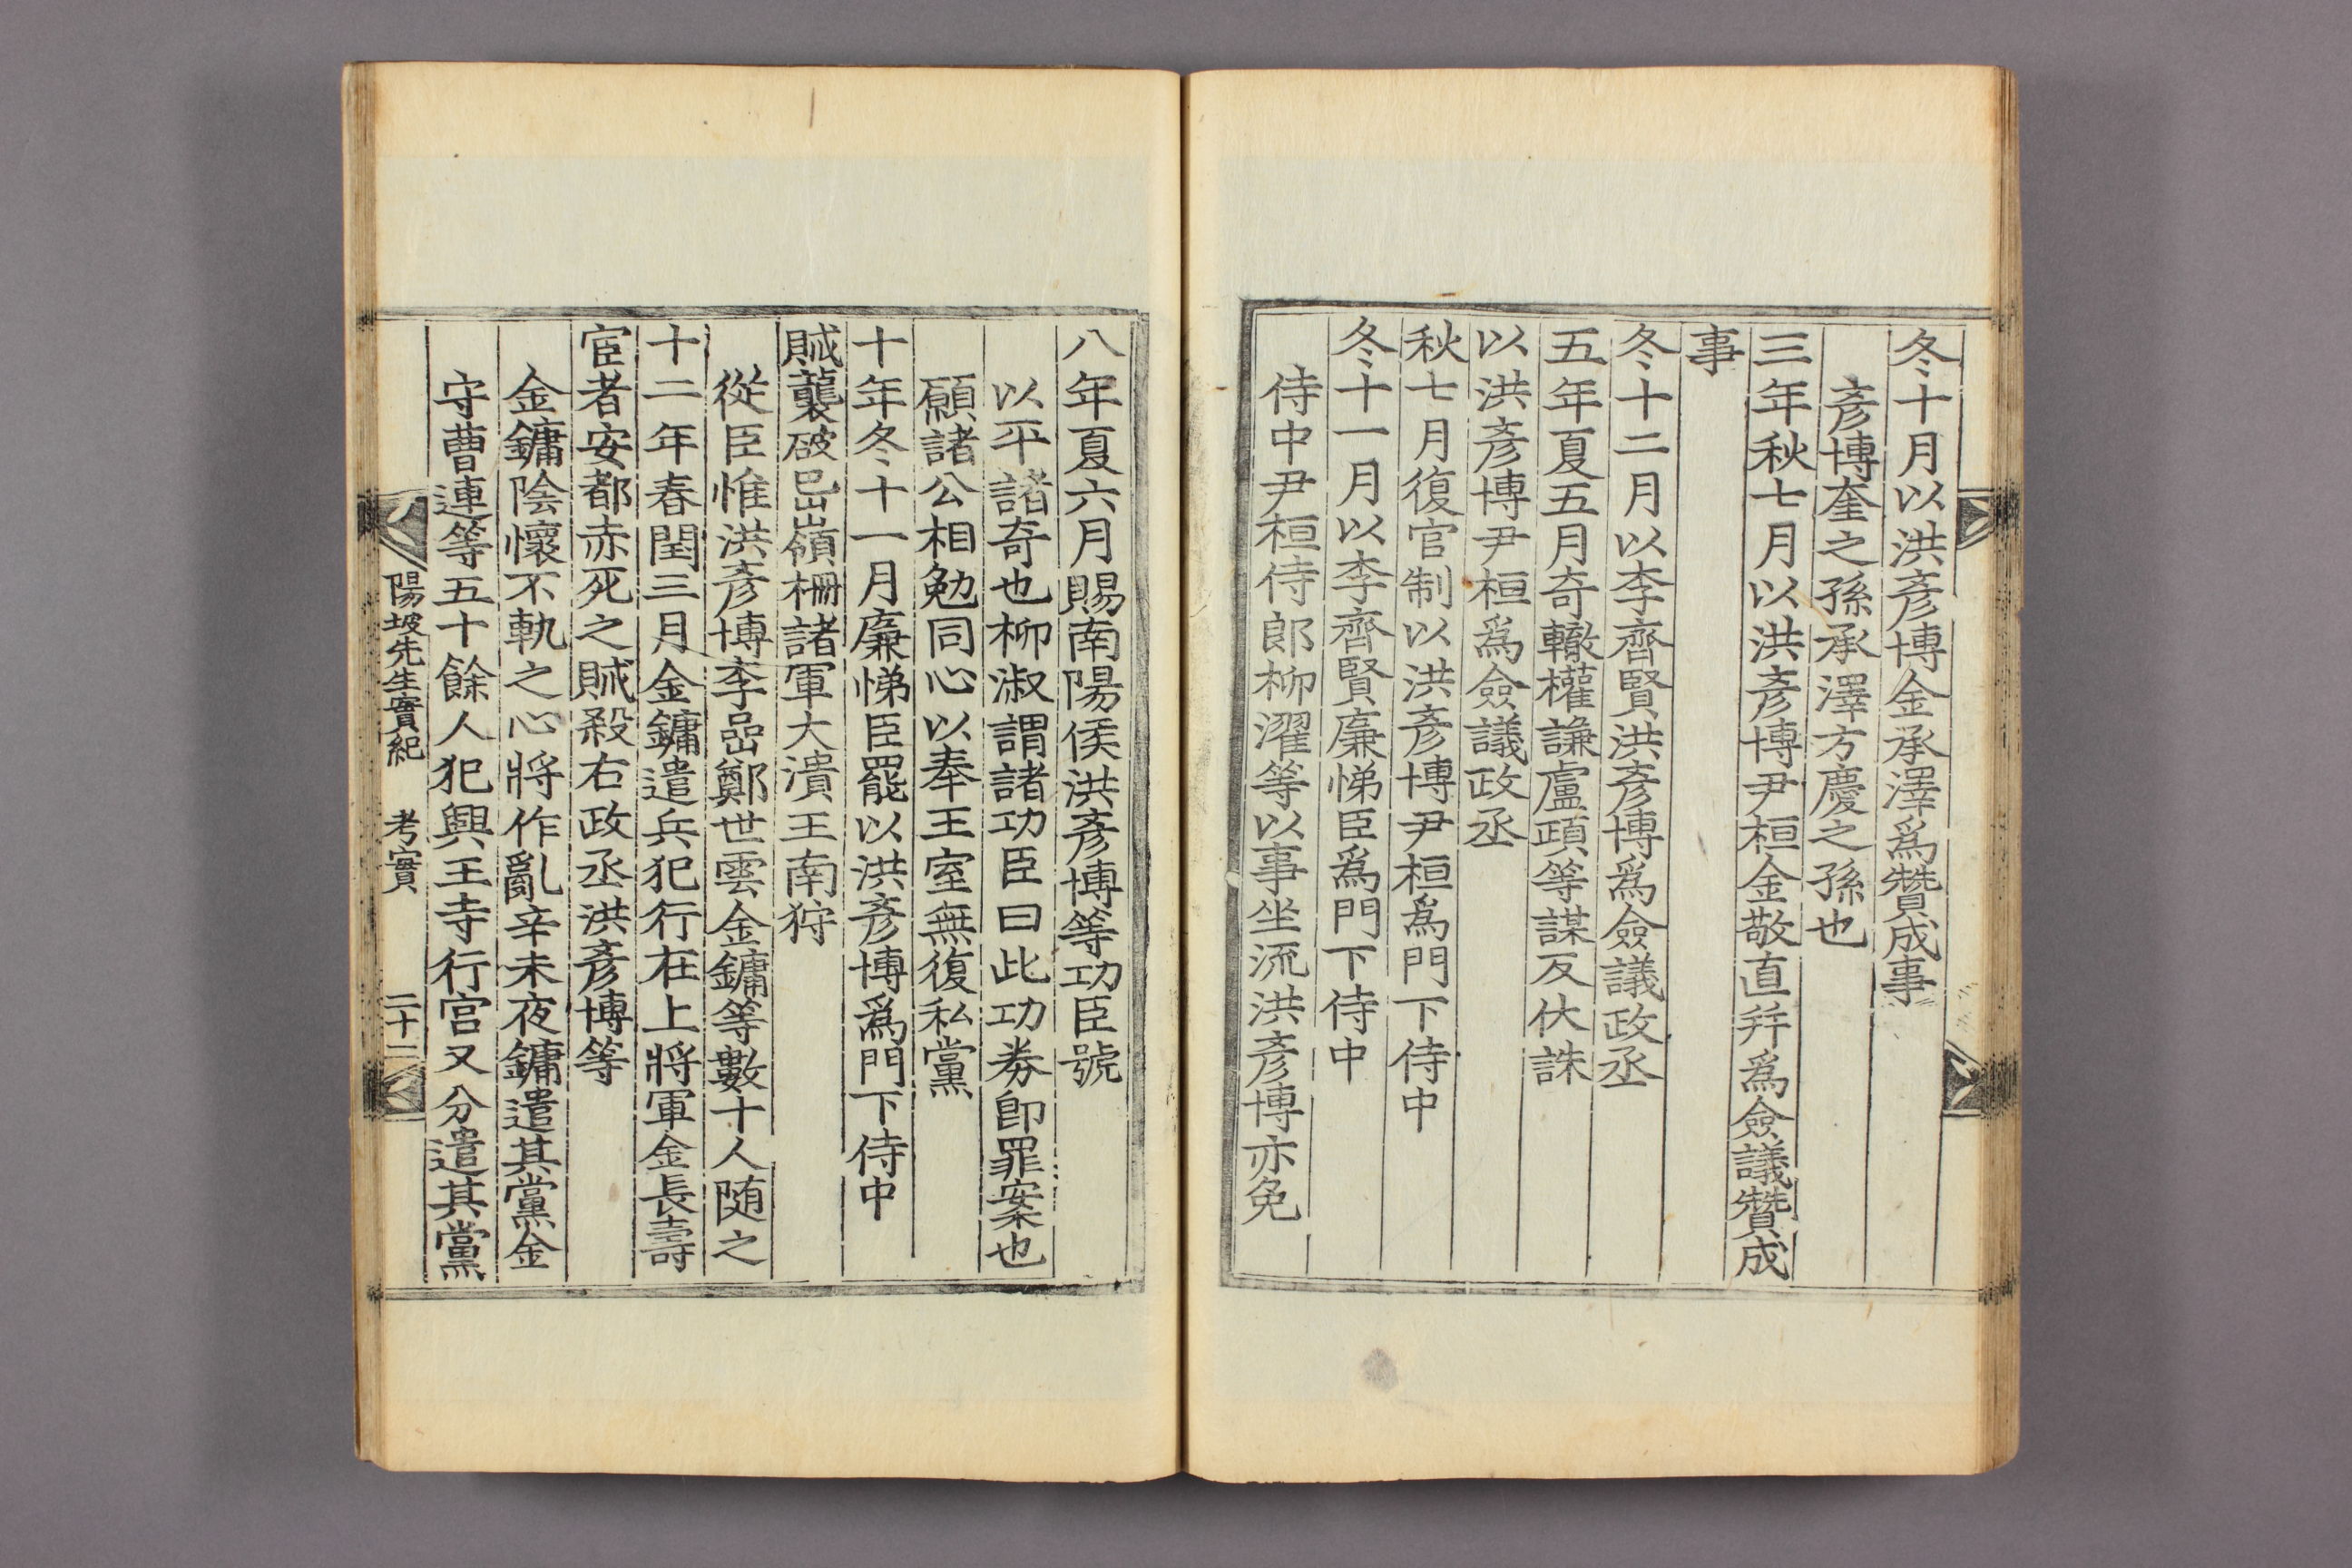 冬十月以洪彥博金承澤爲贊成事
彥博奎之孫承澤方慶之孫也
三年秋七月以洪彥博尹桓金敬直幷爲僉議贊成
事
冬十二月以李齊賢洪彥博爲僉議政丞
五年夏五月奇轍權謙盧頙等謀反伏誅
以洪彥博尹桓爲僉議政丞
秋七月復官制以洪彥博尹桓爲門下侍中
冬十一月以李齊賢廉悌臣爲門下侍中
侍中尹桓侍郎柳濯等以事坐流洪彥博亦免
八年夏六月賜南陽侯洪彥博等功臣號
以平諸奇也柳淑謂諸功臣曰此功券卽罪案也
願諸公相勉同心以奉王室無復私黨
十年冬十一月廉悌臣罷以洪彥博爲門下侍中
賊襲破岊嶺柵諸軍大潰王南狩
從臣惟洪彥博李嵒鄭世雲金鏞等數十人随之
十二年春閏三月金鏞遣兵犯行在上將軍金長壽
宦者安都赤死之賊殺右政丞洪彥博等
金鏞陰懷不軌之心將作亂辛未夜鏞遣其黨金
守曹連等五十餘人犯興王寺行宮又分遣其黨
陽坡先生實紀 考實 二十二